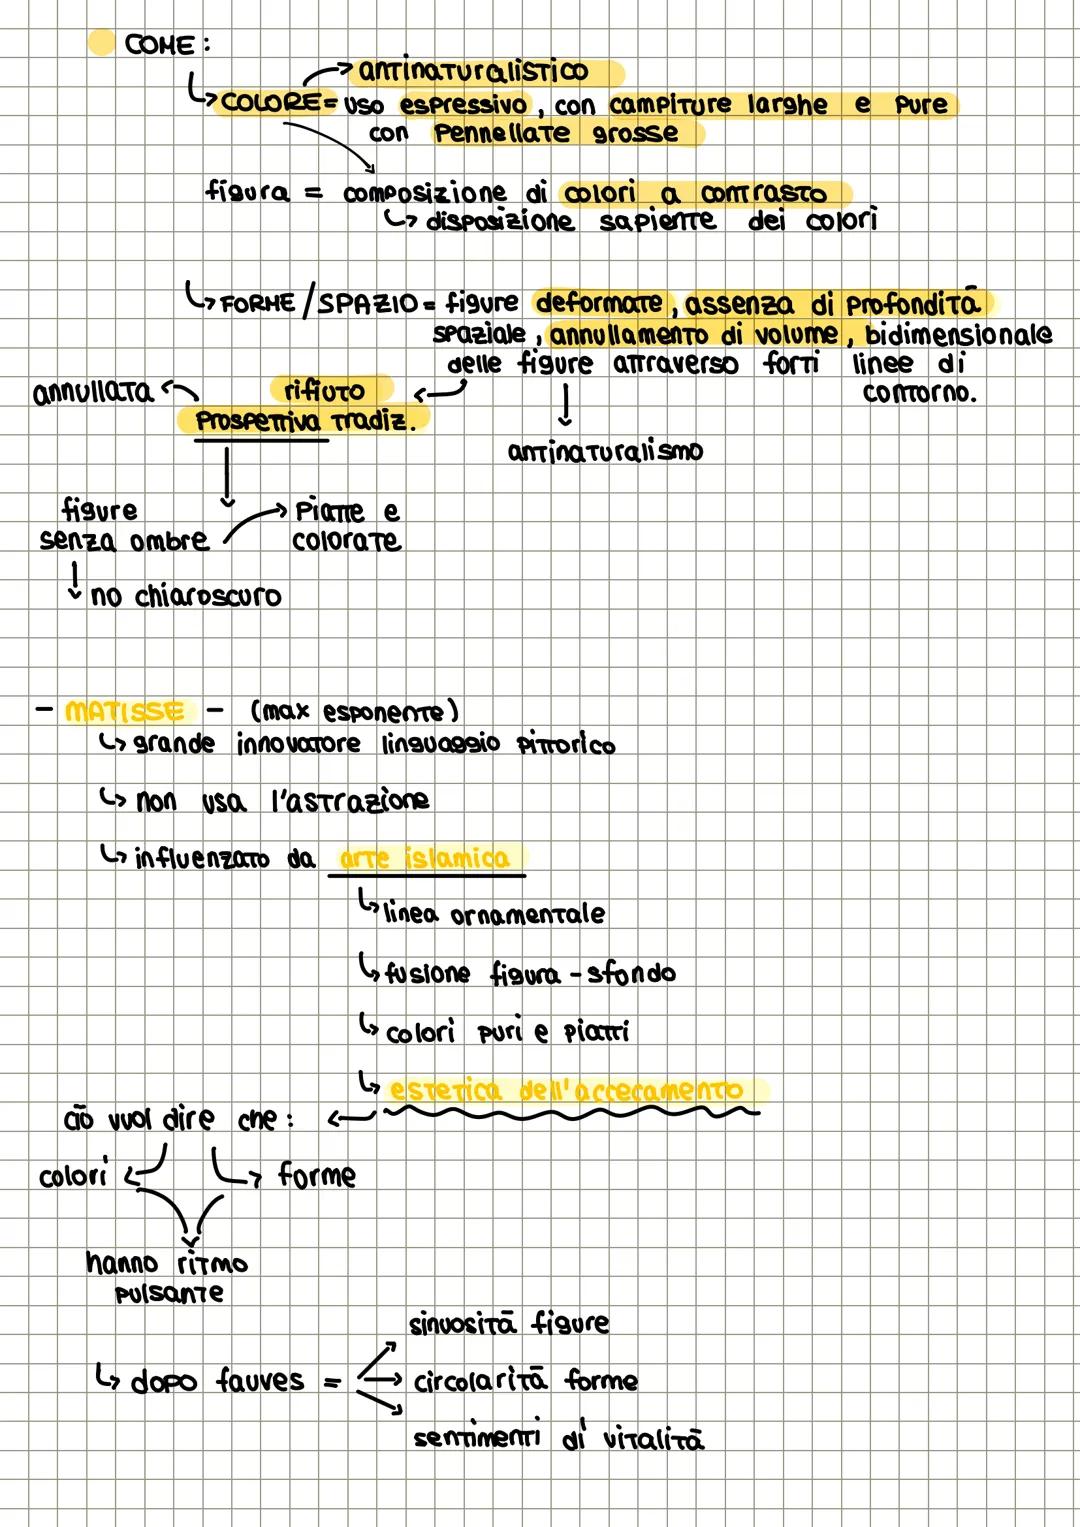 COME:
antinaturalistico
COLORE = uso espressivo, con campiture larghe e pure
con pennellate grosse
figura = composizione di colori a contrasto
disposizione sapiente dei colori
FORME/SPAZIO = figure deformate, assenza di profonditā
spaziale, annullamento di volume, bidimensionale
delle figure attraverso forti linee di
contorno.
annullata
rifiuto
prospettiva tradiz.
antinaturalismo
figure
senza ombre
piatte e
colorate
no chiaroscuro
- MATISSE - (max esponente)
grande innovatore linguaggio pittorico
non usa l'astrazione
influenzato da arte islamica
linea ornamentale
fusione figura - sfondo
colori puri e piatti
estetica dell'accecamento
ciō vuol dire che:
colori
forme
hanno ritmo
pulsante
sinuositā figure
dopo fauves =
circolaritā forme
sentimenti di vitalitā